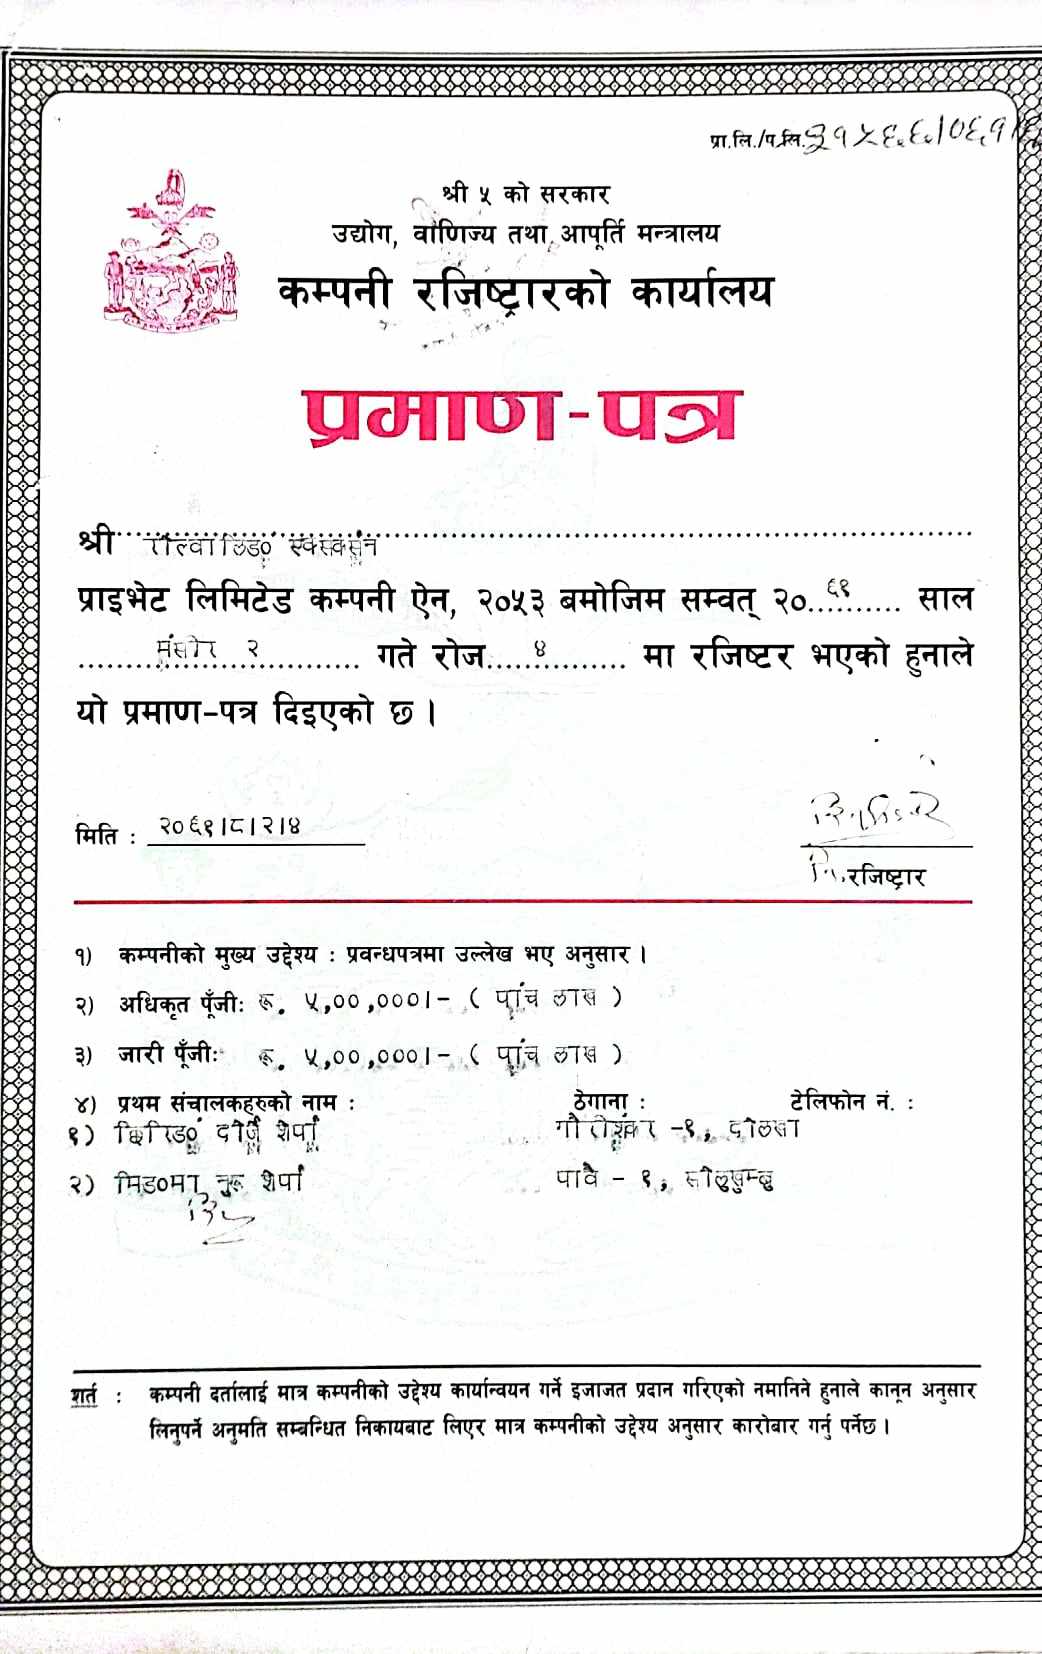 प्रा.लि./प.लि. ३१५६६/०६१/
श्री ५ को सरकार
उद्योग, वाणिज्य तथा आपूर्ति मन्त्रालय
कम्पनी रजिष्ट्रारको कार्यालय
प्रमाण-पत्र
श्री रोल्वालिङ एक्सकर्सन
प्राइभेट लिमिटेड कम्पनी ऐन, २०५३ बमोजिम सम्वत् २०६१ साल
मंसीर २ गते रोज ४ मा रजिष्टर भएको हुनाले
यो प्रमाण-पत्र दिइएको छ ।
मिति : २०६१।८।२।४
रजिष्ट्रार
१) कम्पनीको मुख्य उद्देश्य : प्रवन्धपत्रमा उल्लेख भए अनुसार ।
२) अधिकृत पूँजी: रू. ५,००,०००।- ( पांच लाख )
३) जारी पूँजी: रू. ५,००,०००।- ( पांच लाख )
४) प्रथम संचालकहरुको नाम : ठेगाना : टेलिफोन नं. :
१) छिरिङ दोर्जे शेर्पा गौरीशंकर -१, दोलखा
२) मिङमा नुरू शेर्पा पावै - १, सोलुखुम्बु
शर्त : कम्पनी दर्तालाई मात्र कम्पनीको उद्देश्य कार्यान्वयन गर्ने इजाजत प्रदान गरिएको नमानिने हुनाले कानून अनुसार
लिनुपर्ने अनुमति सम्बन्धित निकायबाट लिएर मात्र कम्पनीको उद्देश्य अनुसार कारोबार गर्नु पर्नेछ ।